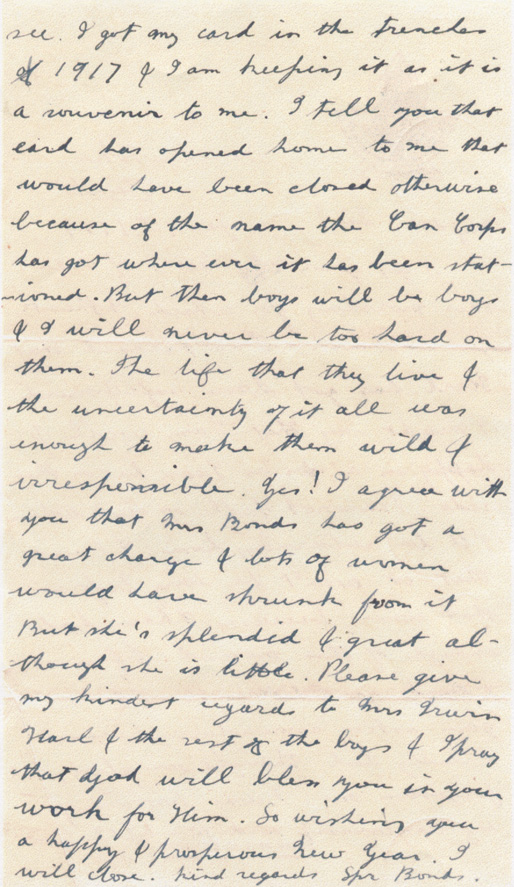 see. I got my card in the trenches
of 1917 & I am keeping it as it is
a souvenir to me. I tell you that
card has opened home to me that
would have been closed otherwise
because of the name the Can Corps
has got where ever it has been stat-
ioned. But then boys will be boys
& I will never be too hard on
them. The life that they live &
the uncertainty of it all was
enough to make them wild &
irresponsible. Yes! I agree with
you that Mrs Bonds has got a
great charge & lots of women
would have shrunk from it
But she's splendid & great al-
though she is little. Please give
my kindest regards to Mrs Irwin
& the rest of the boys & I pray
that God will bless you in your
work for Him. So wishing you
a happy & prosperous New Year. I
will close. Kind regards Spr Bonds.